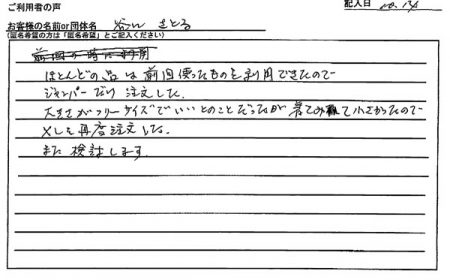 ご利用者の声
記入日
お客様の名前or団体名 谷川 さとる
(匿名希望の方は「匿名希望」とご記入ください)
ほとんどの品は前回使ったものを利用できたので
ジャンパーだけ注文した。
大きさがフリーサイズでいいとのことだったが着てみて小さかったので
XLを再度注文した。
また検討します。